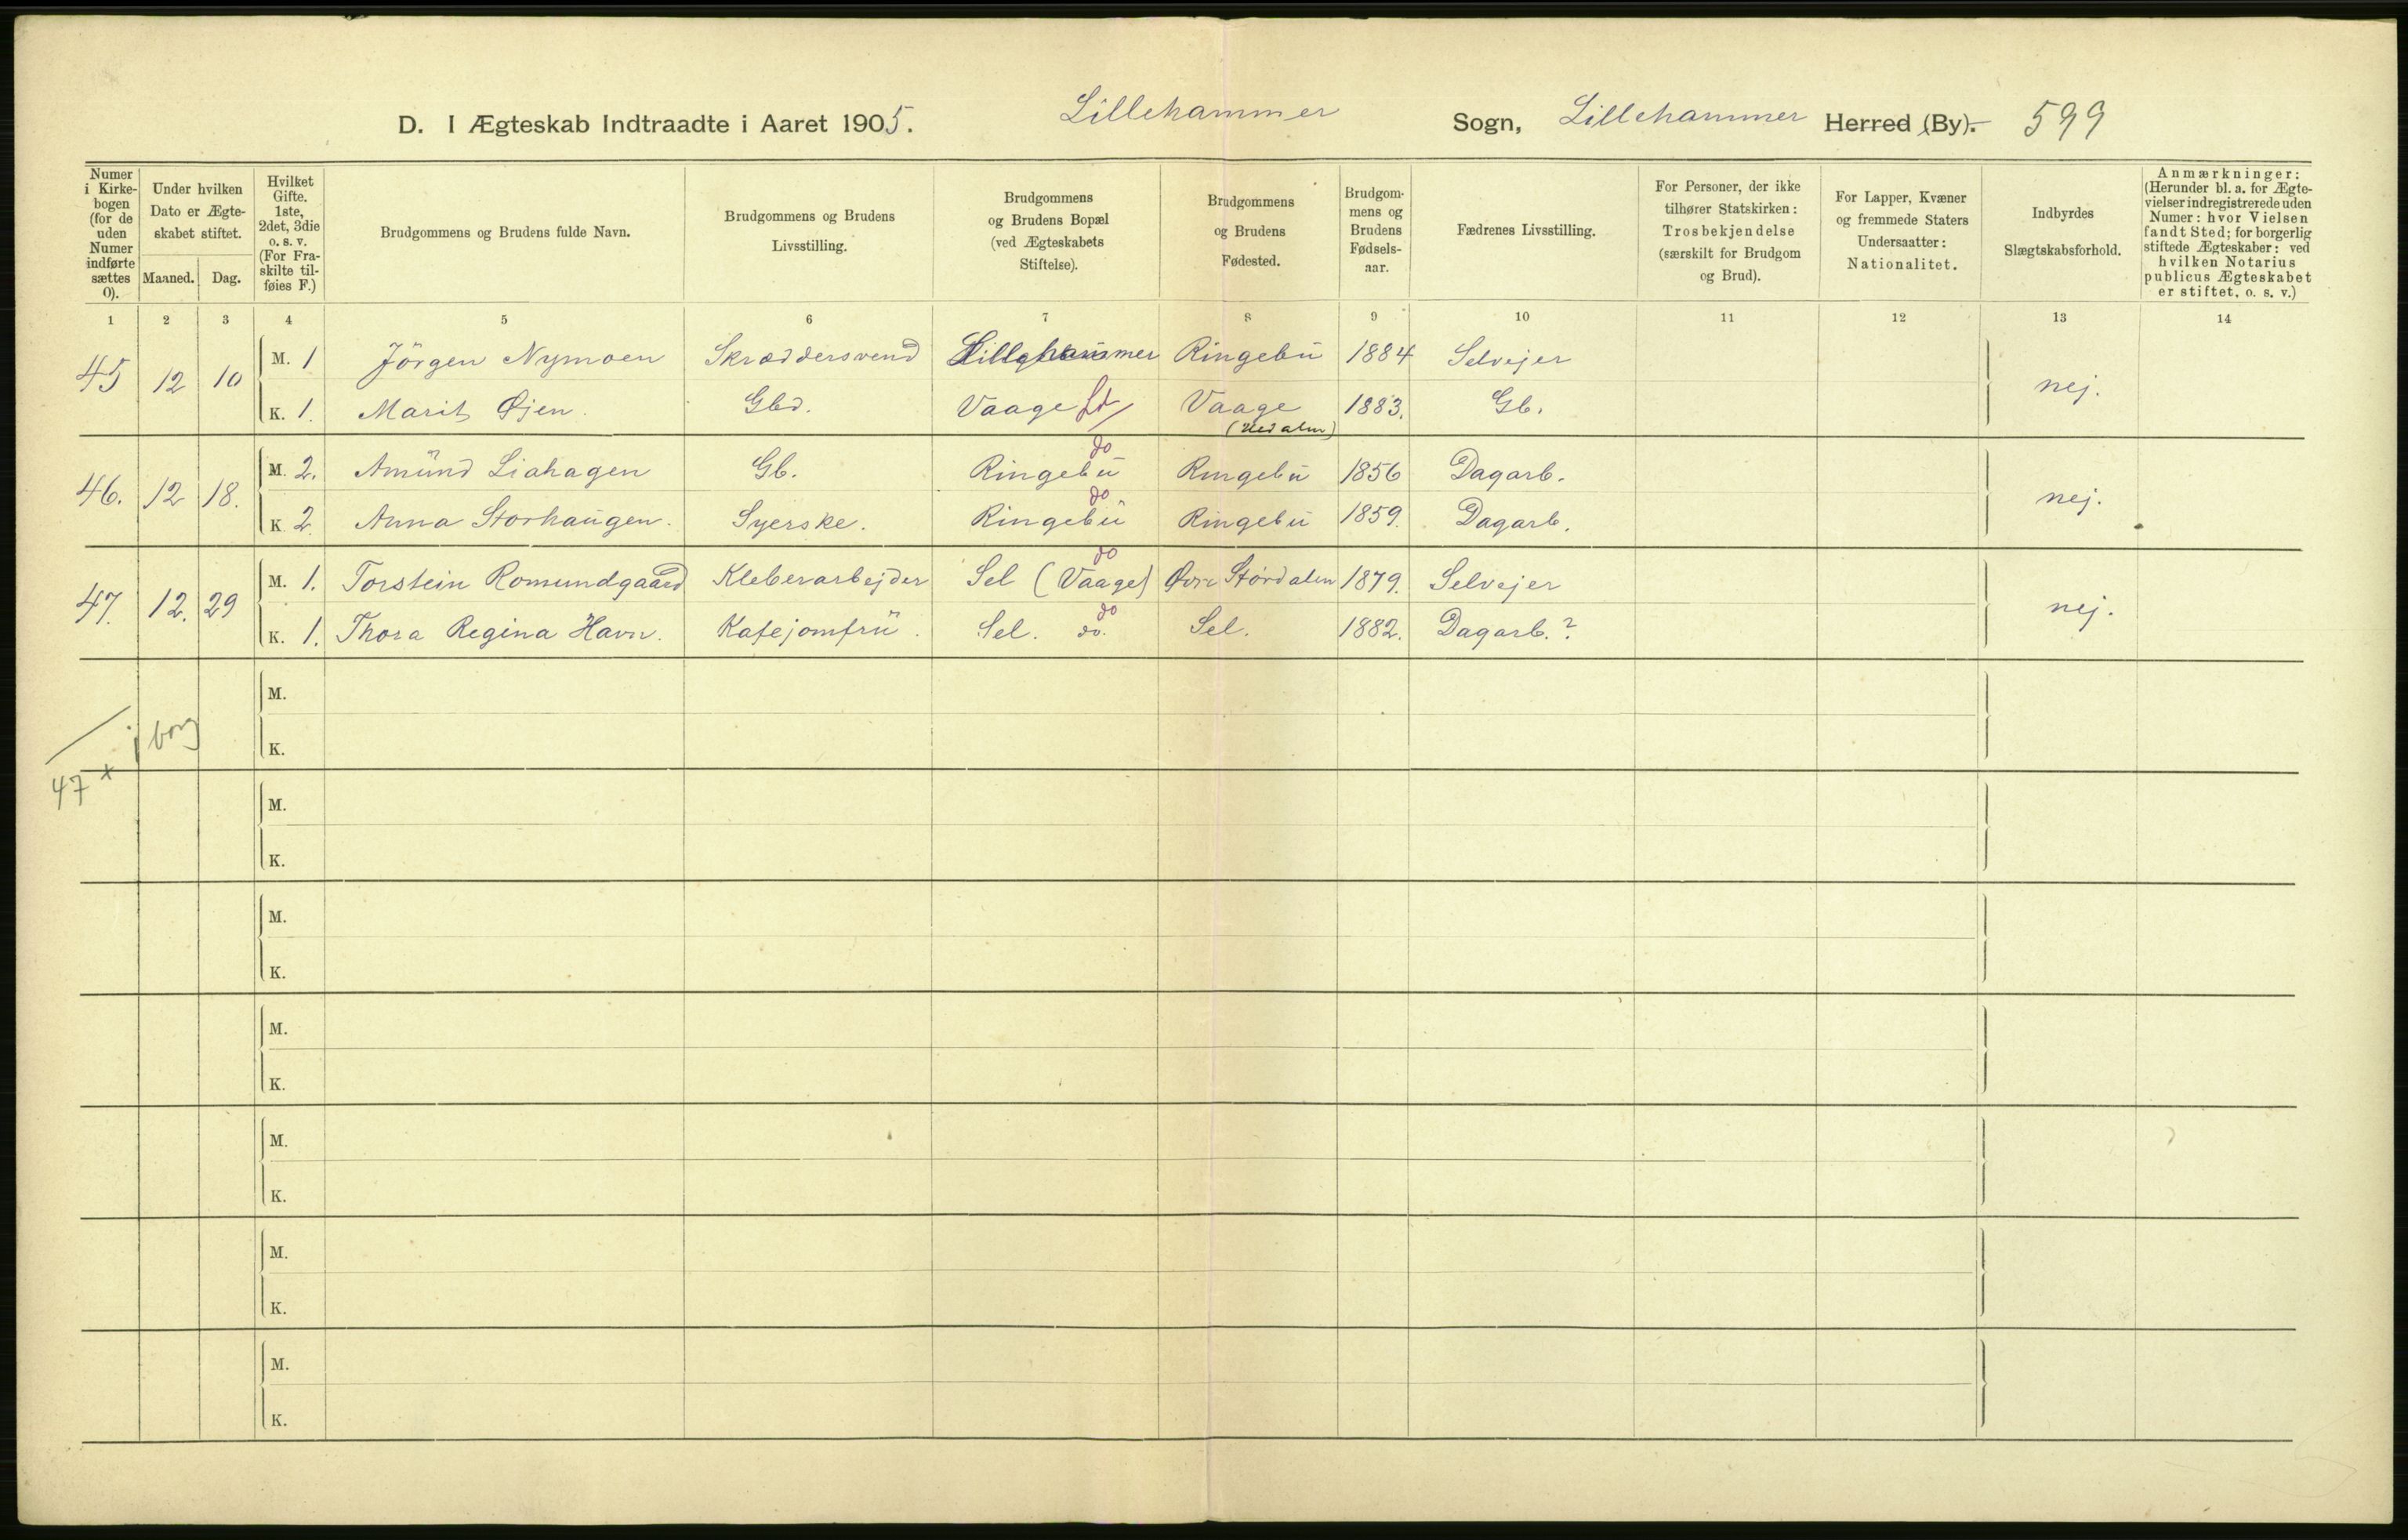 D. I Ægteskab Indtraadte i Aaret 1905. Lillehammer Sogn, Lillehammer Herred (By). 599
Numer i Kirkebogen (for de uden Numer indførte sættes 0).
Under hvilken Dato er Ægteskabet stiftet.
Maaned. Dag.
Hvilket Gifte. 1ste, 2det, 3die o. s. v. (For Fraskilte tilføies F.)
Brudgommens og Brudens fulde Navn.
Brudgommens og Brudens Livsstilling.
Brudgommens og Brudens Bopæl (ved Ægteskabets Stiftelse).
Brudgommens og Brudens Fødested.
Brudgommens og Brudens Fødselsaar.
Fædrenes Livsstilling.
For Personer, der ikke tilhører Statskirken: Trosbekjendelse (særskilt for Brudgom og Brud).
For Lapper, Kvæner og fremmede Staters Undersaatter: Nationalitet.
Indbyrdes Slægtskabsforhold.
Anmærkninger: (Herunder bl. a. for Ægtevielser indregistrerede uden Numer: hvor Vielsen fandt Sted; for borgerlig stiftede Ægteskaber: ved hvilken Notarius publicus Ægteskabet er stiftet, o. s. v.)
1 2 3 4 5 6 7 8 9 10 11 12 13 14
45 12 10 M. 1 Jörgen Nymoen Skræddersvend Lillehammer Ringebu 1884 Selvejer nej.
K. 1. Marit Øjen. Gbd. Vaage Vaage 1883. Gb.
do
46. 12 18. M. 2. Amund Liahagen Gb. Ringebu Ringebu 1856 Dagarb. nej.
do
K. 2. Anna Storhaugen. Syerske. Ringebu Ringebu 1859. Dagarb.
do
47. 12. 29 M. 1. Torstein Romundgaard Kleberarbejder Sel (Vaage) Øvre Stördalen 1879. Selvejer nej.
do
K. 1. Thora Regina Havn. Kafejomfru. Sel. do. Sel. 1882. Dagarb.?
M.
K.
j borg
47 *
M.
K.
M.
K.
M.
K.
M.
K.
M.
K.
M.
K.